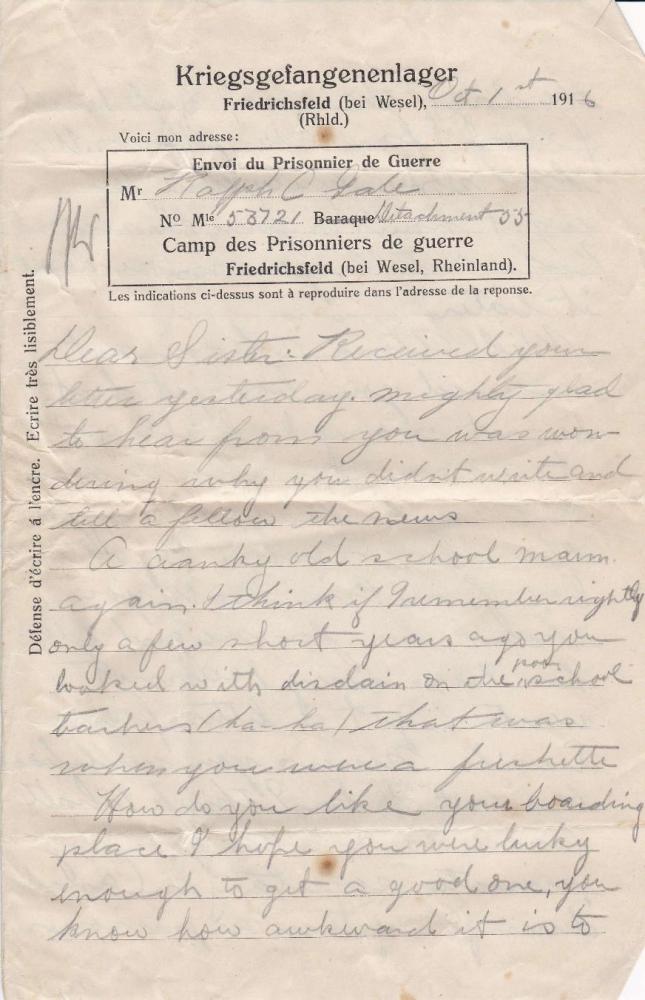 Kriegsgefangenenlager
Friedrichsfeld (bei Wesel), Oct 1st 1916
(Rhld.)
Voici mon adresse:
Envoi du Prisonnier de Guerre
Mr Ralph C Gale
No Mle 53721 Baraque Detachment 55
Camp des Prisonniers de guerre
Friedrichsfeld (bei Wesel, Rheinland).
Les indications ci-dessus sont à reproduire dans l'adresse de la reponse.
Défense d'écrire á l'encre. Ecrire très lisiblement.
Dear Sister: Received your
letter yesterday. mighty glad
to hear from you was won
dering why you didn't write and
tell a fellow the news
A cranky old school marm
again. I think if I remember rightly
only a few short years ago you
looked with disdain on the poor school
teachers (ha-ha) that was
when you were a freshette
How do you like your boarding
place I hope you were lucky
enough to get a good one, you
know how awkward it is to